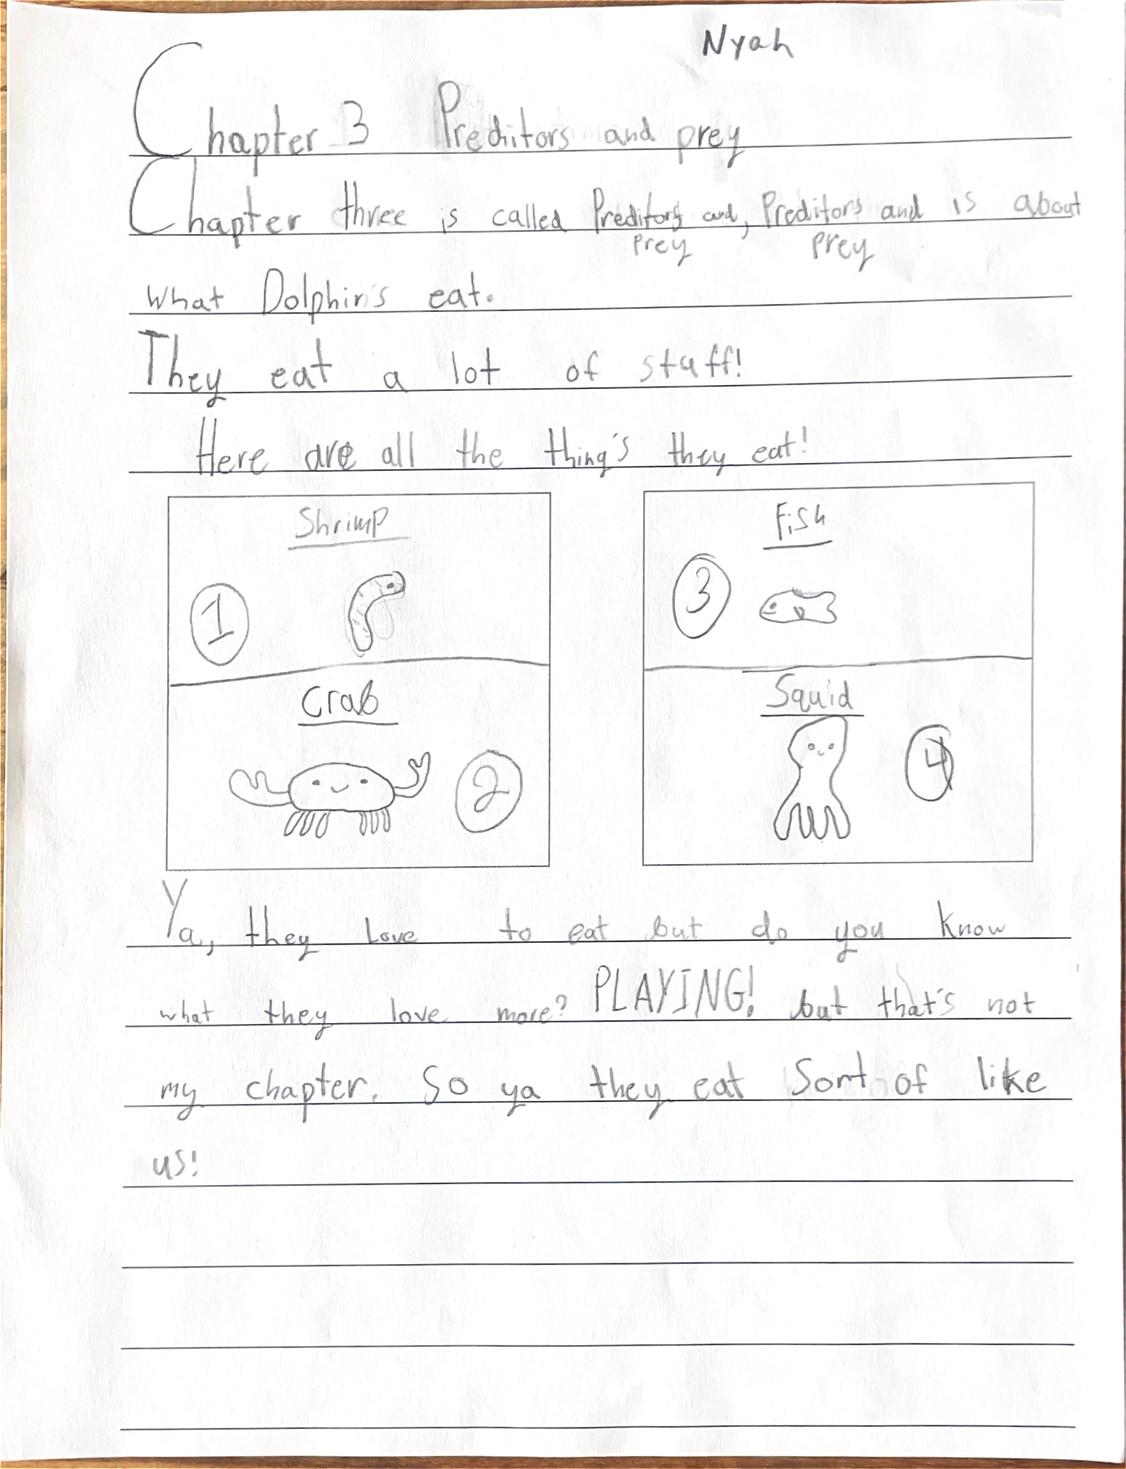 Nyah
Chapter 3 Preditors and prey
Chapter three is called Preditors and prey, Preditors and prey is about
what Dolphin's eat.
They eat a lot of stuff!
Here are all the thing's they eat!
Shrimp
1
Crab
2
Fish
3
Squid
4
Ya, they love to eat but do you know
what they love more? PLAYING! but that's not
my chapter. So ya they eat Sort of like
us!